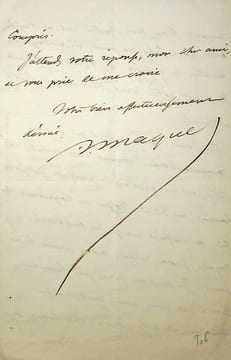 Compris.
J'attends votre réponse, mon cher ami,
et vous prie de me croire
Votre bien affectueusement
dévoué
A. Maquet